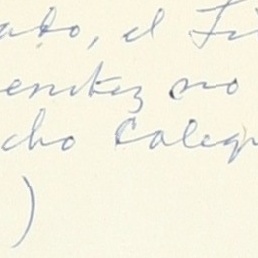 ato, el Ti
enitez no
cho Coleg
)